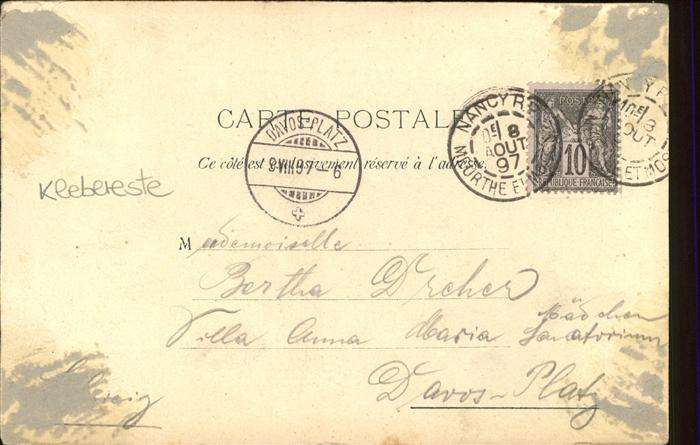 CARTE POSTALE
Ce côté est exclusivement réservé à l'adresse.
NANCY R.P.
8
AOUT
97
MEURTHE ET MOS
POSTE
10
REPUBLIQUE FRANÇAISE
8
AOUT
ET MOS
DAVOS-PLATZ
9.VIII.97.-6
Klebereste
Mademoiselle
Bertha Dreher
Villa Anna Maria Mädchen Sanatorium
Davos-Platz